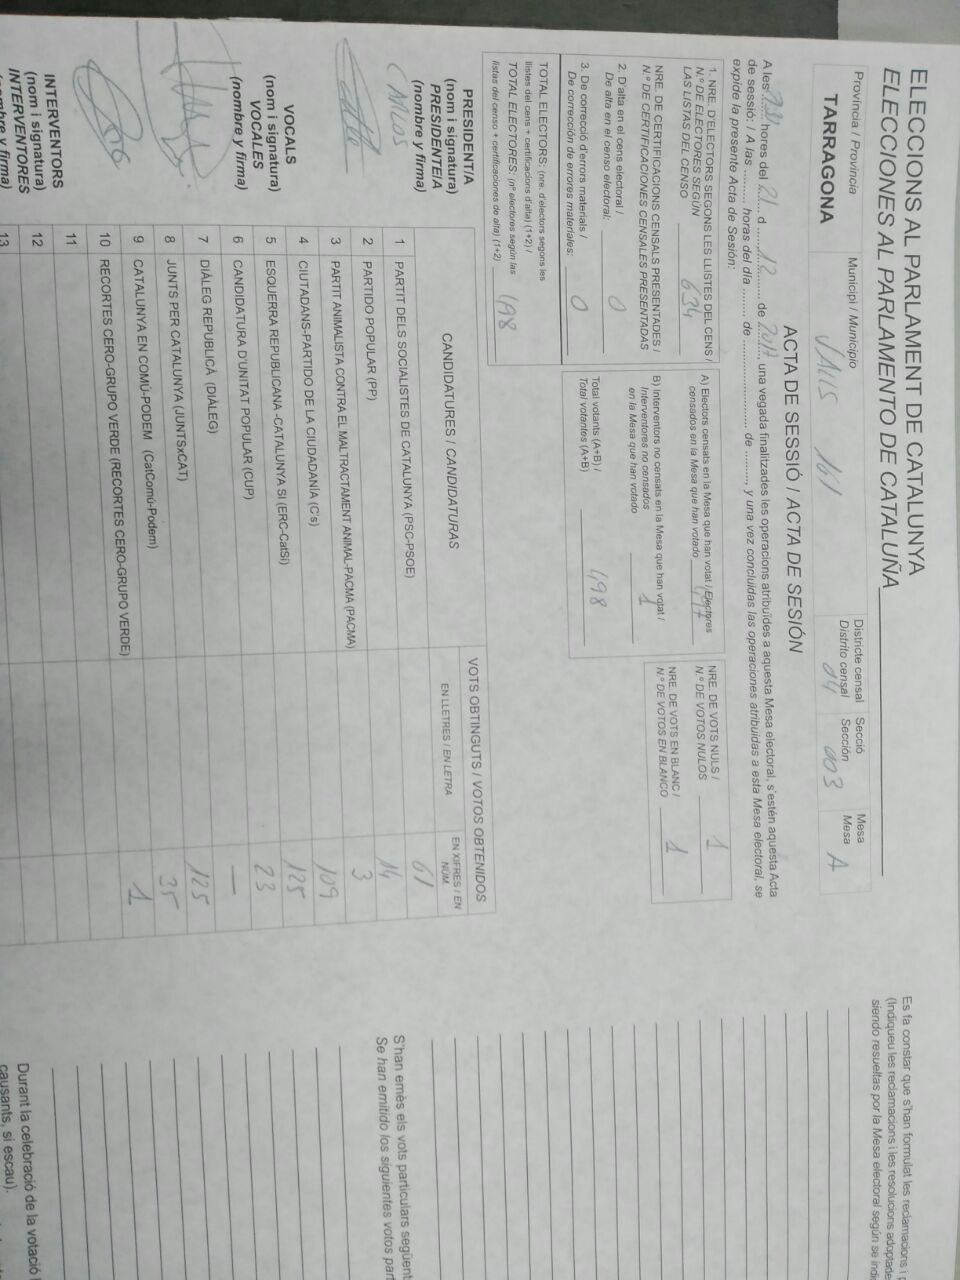 ELECCIONS AL PARLAMENT DE CATALUNYA
ELECCIONES AL PARLAMENTO DE CATALUÑA
Província / Provincia
Municipi / Municipio
Districte censal
Distrito censal
Secció
Sección
Mesa
Mesa
TARRAGONA
VALLS 161
04
003
A
ACTA DE SESSIÓ / ACTA DE SESIÓN
A les hores del 21 d 12 de 2017, una vegada finalitzades les operacions atribuïdes a aquesta Mesa electoral, s'estén aquesta Acta
de sessió: / A las ......... horas del día ......... de ........................ de ........., y una vez concluidas las operaciones atribuidas a esta Mesa electoral, se
expide la presente Acta de Sesión:
1. NRE. D'ELECTORS SEGONS LES LLISTES DEL CENS /
N.º DE ELECTORES SEGÚN
LAS LISTAS DEL CENSO 634
NRE. DE CERTIFICACIONS CENSALS PRESENTADES /
N.º DE CERTIFICACIONES CENSALES PRESENTADAS
2. D'alta en el cens electoral /
De alta en el censo electoral: 0
3. De correcció d'errors materials /
De corrección de errores materiales: 0
TOTAL ELECTORS: (nre. d'electors segons les
llistes del cens + certificacions d'alta) (1+2) /
TOTAL ELECTORES: (nº electores según las
listas del censo + certificaciones de alta) (1+2) 498
A) Electors censats en la Mesa que han votat / Electores
censados en la Mesa que han votado 497
B) Interventors no censats en la Mesa que han votat /
Interventores no censados
en la Mesa que han votado 1
Total votants (A+B) /
Total votantes (A+B) 498
NRE. DE VOTS NULS /
N.º DE VOTOS NULOS 1
NRE. DE VOTS EN BLANC /
N.º DE VOTOS EN BLANCO 1
CANDIDATURES / CANDIDATURAS
VOTS OBTINGUTS / VOTOS OBTENIDOS
EN LLETRES / EN LETRA
EN XIFRES / EN
NÚM.
1 PARTIT DELS SOCIALISTES DE CATALUNYA (PSC-PSOE) 61
2 PARTIDO POPULAR (PP) 14
3 PARTIT ANIMALISTA CONTRA EL MALTRACTAMENT ANIMAL-PACMA (PACMA) 3
4 CIUTADANS-PARTIDO DE LA CIUDADANÍA (C's) 109
5 ESQUERRA REPUBLICANA -CATALUNYA SÍ (ERC-CatSí) 125
6 CANDIDATURA D'UNITAT POPULAR (CUP) 23
7 DIÀLEG REPUBLICÀ (DIÀLEG) —
8 JUNTS PER CATALUNYA (JUNTSxCAT) 125
9 CATALUNYA EN COMÚ-PODEM (CatComú-Podem) 35
10 RECORTES CERO-GRUPO VERDE (RECORTES CERO-GRUPO VERDE) 1
11
12
13
PRESIDENT/A
(nom i signatura)
PRESIDENTE/A
(nombre y firma)
VOCALS
(nom i signatura)
VOCALES
(nombre y firma)
INTERVENTORS
(nom i signatura)
INTERVENTORES
(nombre y firma)
Es fa constar que s'han formulat les reclamacions i
(Indiqueu les reclamacions i les resolucions adoptade
siendo resueltas por la Mesa electoral según se indi
S'han emès els vots particulars següent
Se han emitido los siguientes votos part
Durant la celebració de la votació
causants, si escau).